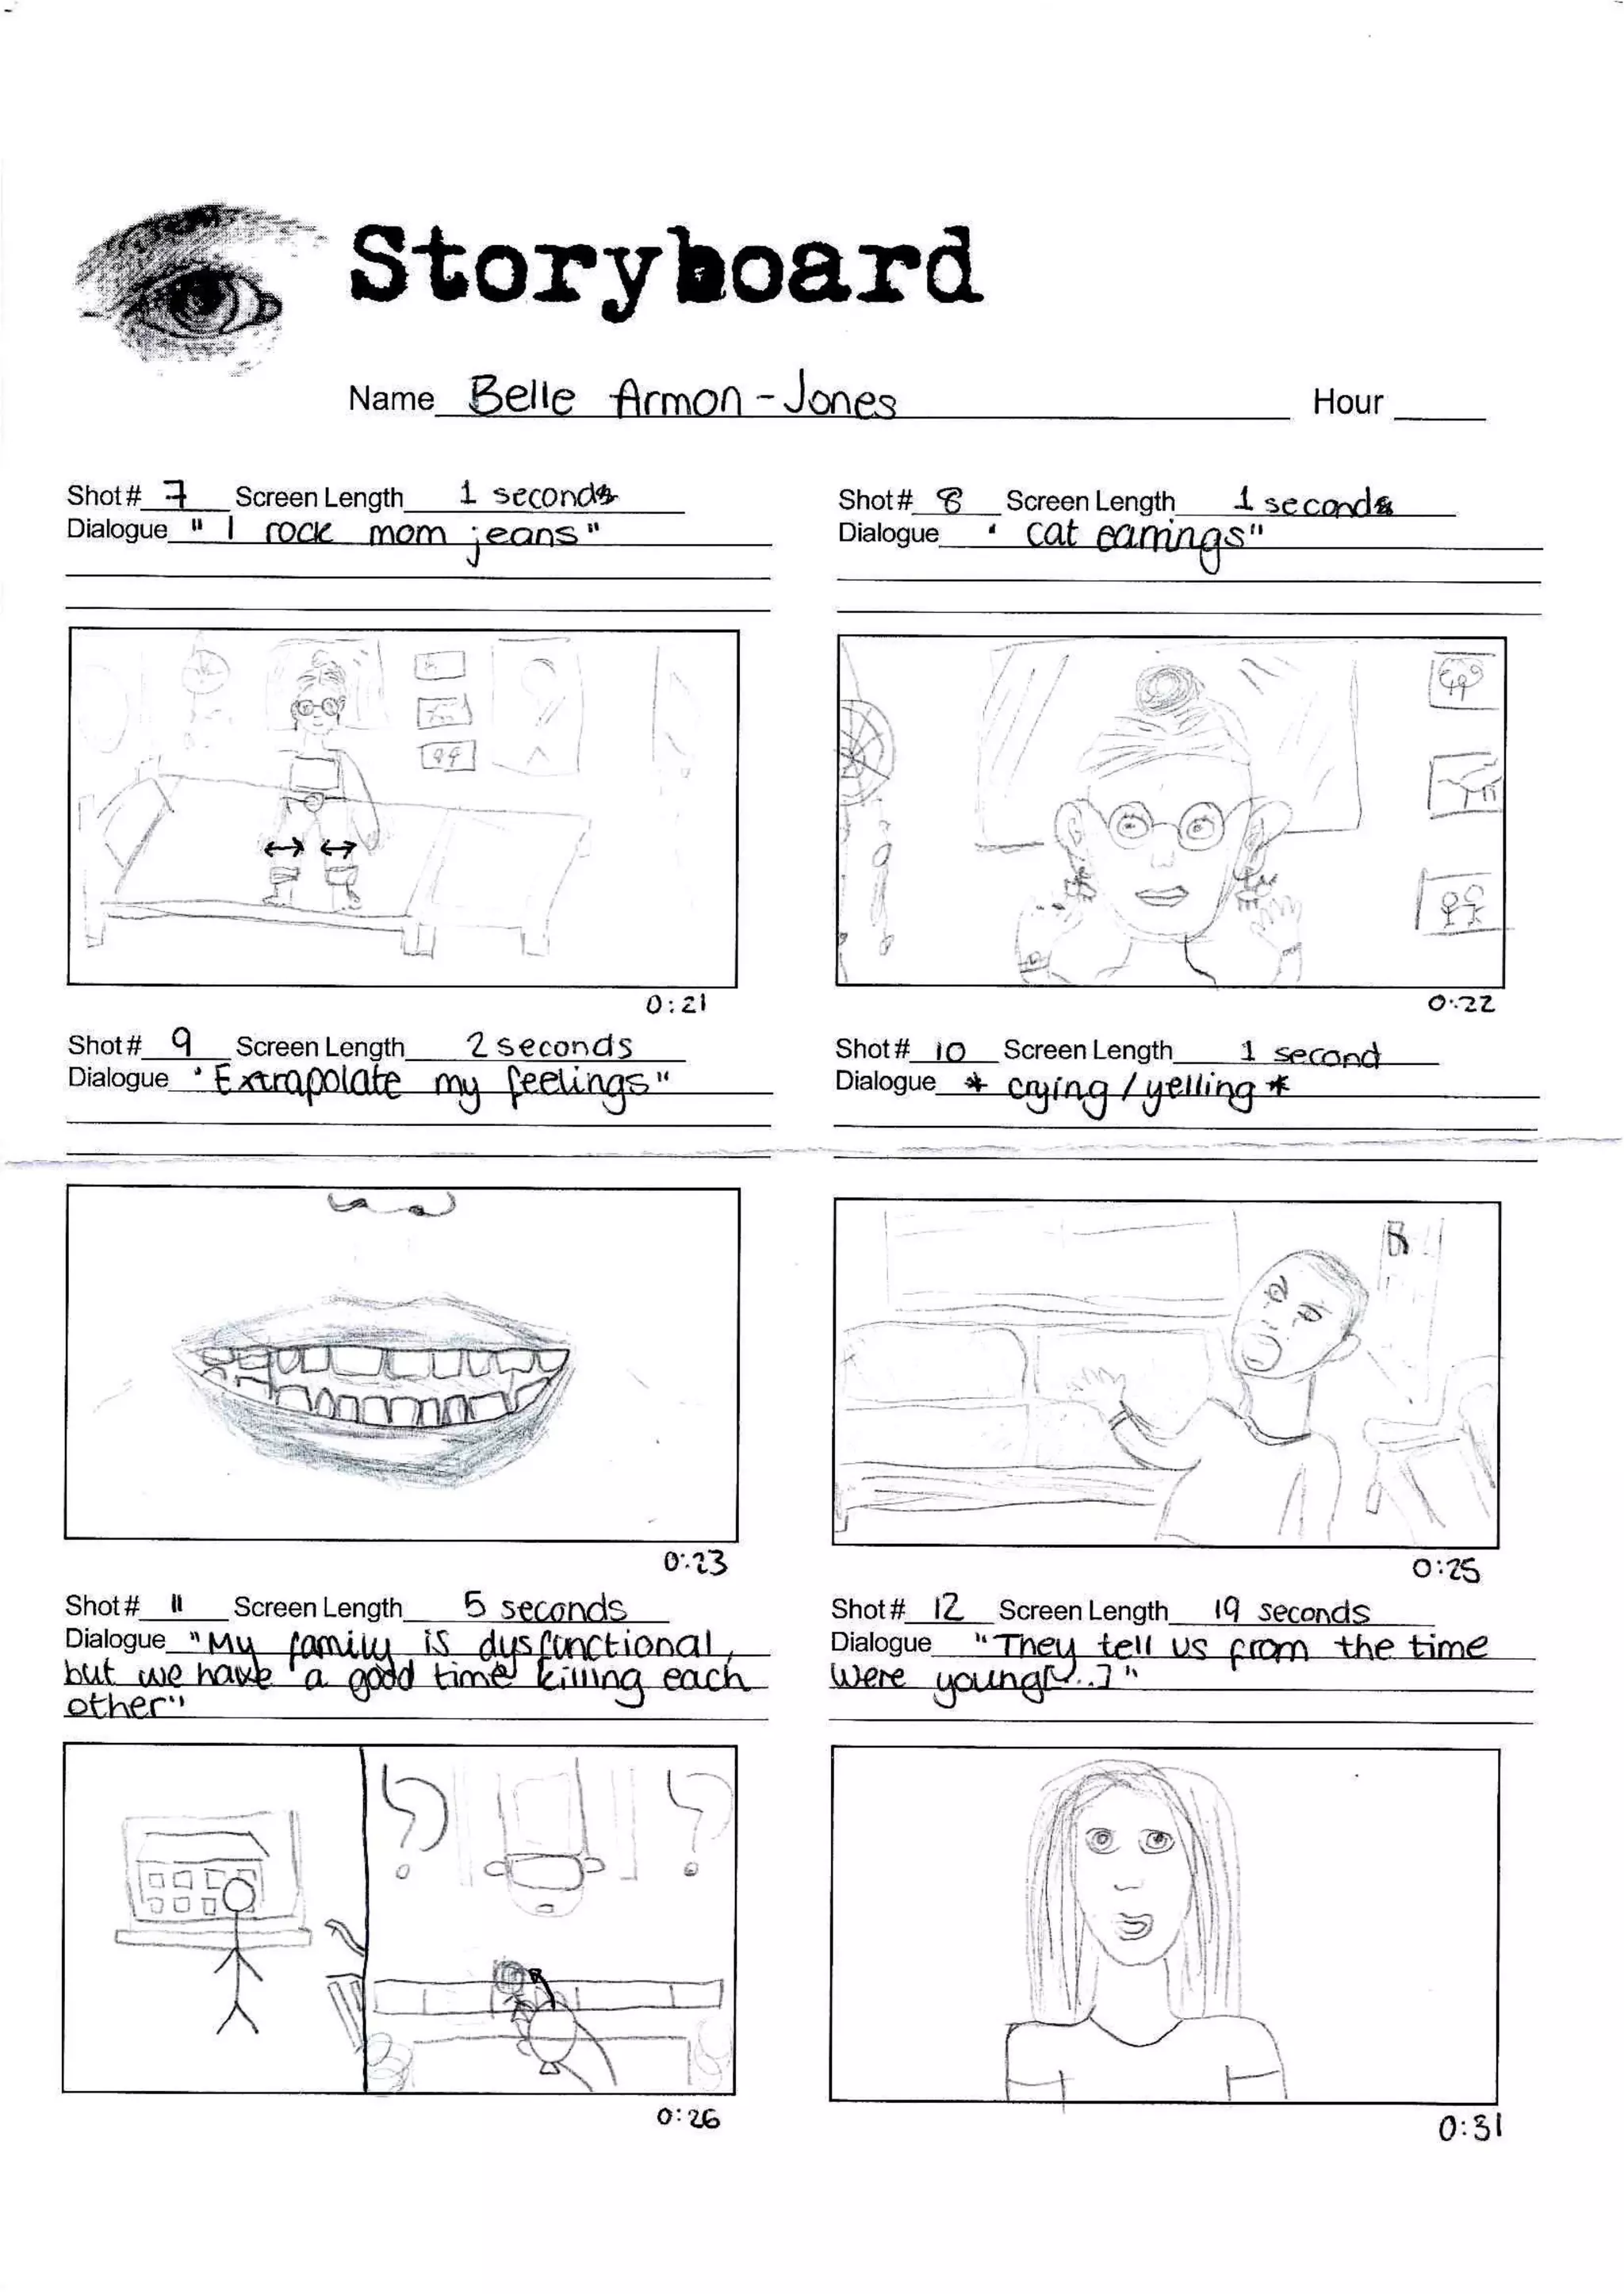 Storyboard
Name Belle Armon-Jones Hour
Shot# 7 Screen Length 1 second
Dialogue " I rock mom jeans "
0:21
Shot# 8 Screen Length 1 second
Dialogue ' cat earrings"
0:22
Shot# 9 Screen Length 2 seconds
Dialogue ' Extrapolate my feelings"
0:23
Shot# 10 Screen Length 1 second
Dialogue * crying / yelling *
0:25
Shot# 11 Screen Length 5 seconds
Dialogue "My family is dysfunctional,
but we have a good time killing each
other"
0:26
Shot# 12 Screen Length 19 seconds
Dialogue "They tell us from the time
were young[...]"
0:31